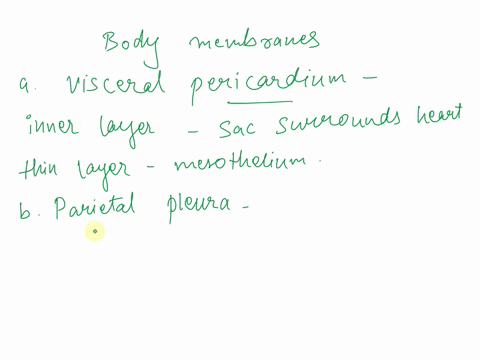 Body membranes
a. visceral pericardium -
inner layer - sac surrounds heart
thin layer - mesothelium.
b. Parietal pleura -